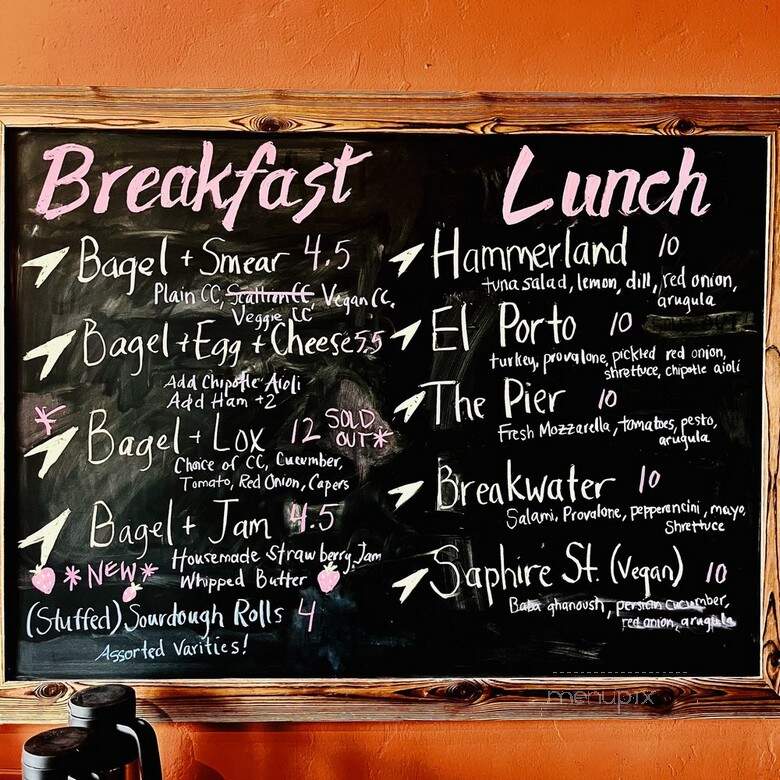 Breakfast
Bagel + Smear 4.5
Plain CC, Scallion CC, Vegan CC,
Veggie CC
Bagel + Egg + Cheese 5.5
Add Chipotle Aioli
Add Ham +2
Bagel + Lox 12 SOLD
OUT*
Choice of CC, Cucumber,
Tomato, Red Onion, Capers
Bagel + Jam 4.5
Housemade Strawberry Jam
*NEW* Whipped Butter
(Stuffed) Sourdough Rolls 4
Assorted Varities!
Lunch
Hammerland 10
tuna salad, lemon, dill, red onion,
arugula
El Porto 10
turkey, provalone, pickled red onion,
shrettuce, chipotle aioli
The Pier 10
Fresh Mozzarella, tomatoes, pesto,
arugula
Breakwater 10
Salami, Provalone, pepperoncini, mayo,
Shrettuce
Saphire St. (Vegan) 10
Baba ghanoush, persian cucumber,
red onion, arugula
menupix